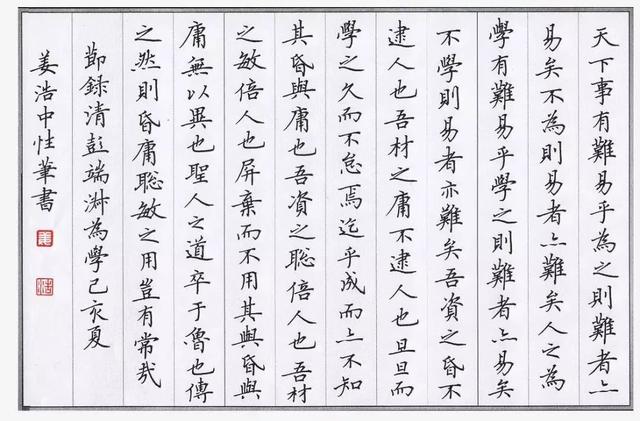 天下事有難易乎為之則難者亦
易矣不為則易者亦難矣人之為
學有難易乎學之則難者亦易矣
不學則易者亦難矣吾資之昏不
逮人也吾材之庸不逮人也旦旦而
學之久而不怠焉迄乎成而亦不知
其昏與庸也吾資之聰倍人也吾材
之敏倍人也屏棄而不用其與昏與
庸無以異也聖人之道卒于魯也傳
之然則昏庸聰敏之用豈有常哉
節録清彭端淑為學己亥夏
姜浩中性筆書